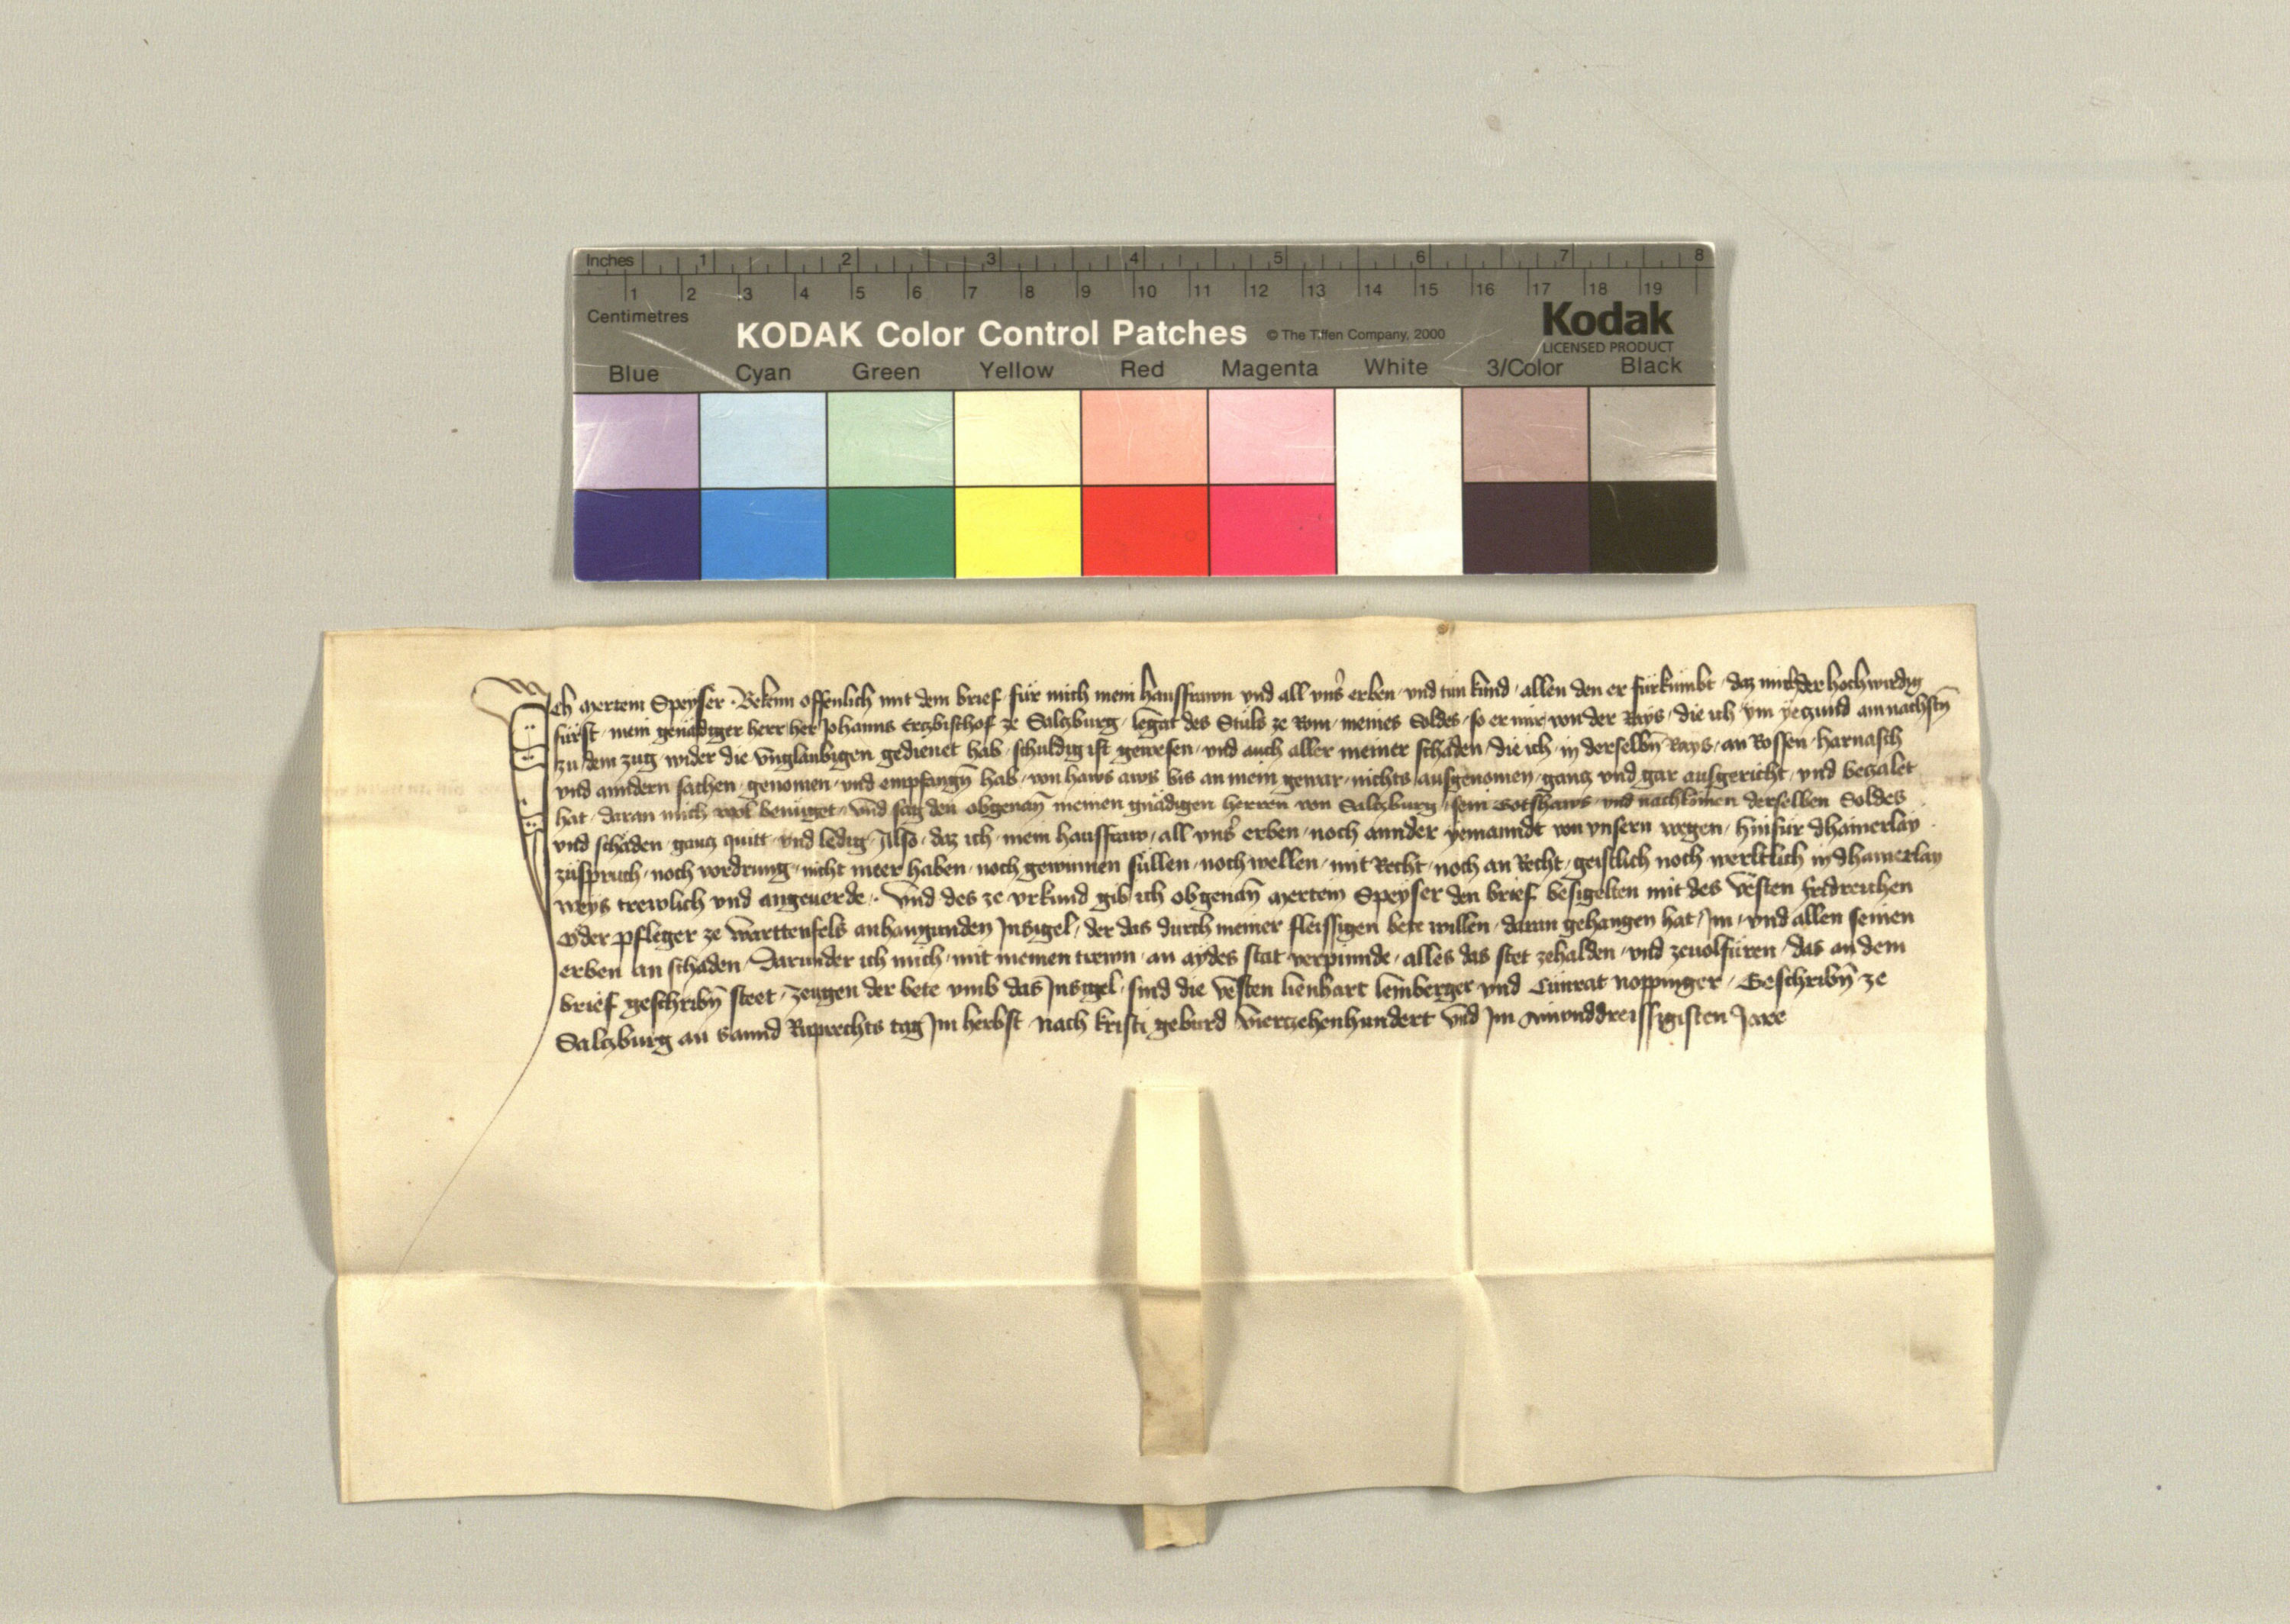 Inches 1 2 3 4 5 6 7 8
1 2 3 4 5 6 7 8 9 10 11 12 13 14 15 16 17 18 19
Centimetres
KODAK Color Control Patches © The Tiffen Company, 2000
Kodak
LICENSED PRODUCT
Blue Cyan Green Yellow Red Magenta White 3/Color Black
Ich mertein Speyser · Bekenn offenlich mit dem brief · für mich mein haussfrawn vnd all vnser erben · vnd tun kund · allen den er fürkumbt · daz mir der hochwirdig
fürst · mein genädiger herr her Johanns Erczbischof ze Salczburg · legat des Stuls ze Rom · meines Soldes · so er mir von der Rays · die ich ym yeczund am nachstn̄
zu dem zug wider die vnglaubigen gedienet hab · schuldig ist gewesen · vnd auch aller meiner schäden · die ich · in derselbn̄ Rays · an Rossen · harnasch
vnd anndern sachen · genomen · vnd empfangn̄ hab · von haws aws bis an mein gewar · nichts ausgenomen · gancz vnd gar ausgericht · vnd beczalet
hat · daran mich wol benüget · vnd sag den obgenan̄ meinen gnädigen herren von Salczburg · sein Gotshaws · vnd nachkomen derselben Soldes
vnd schäden · gancz quitt · vnd ledig · Also · daz ich · mein haussfraw · all vnser erben · noch annder yemanndt von vnsern wegen · hinfür dhainerlay
züspruch · noch vordrung · nicht meer haben · noch gewinnen süllen · noch wellen · mit Recht · noch an Recht · geistlich noch werltlich in dhainerlay
weys trewlich vnd angeuerde · Vnd des ze vrkund gib ich obgenan̄ mertein Speyser den brief besigelten mit des vesten fridreichen
Oder pfleger ze Warttenfels anhangunden Insigel · der das durch meiner fleissigen bete willen · daran gehangen hat · Im · vnd allen seinen
erben an schaden · Darunder ich mich · mit meinen trewn · an aydes stat verpinnde · alles das stet zehalden · vnd zeuolfüren · das an dem
brief geschribn̄ steet · Zeugen der bete vmb das Insigel · sind die Vesten lienhart lemberger vnd Cunrat noppinger · Geschribn̄ ze
Salczburg an sannd Ruprechts tag Im herbst · Nach kristi geburd Vierczehenhundert vnd Im ainvnddreissigisten Jare